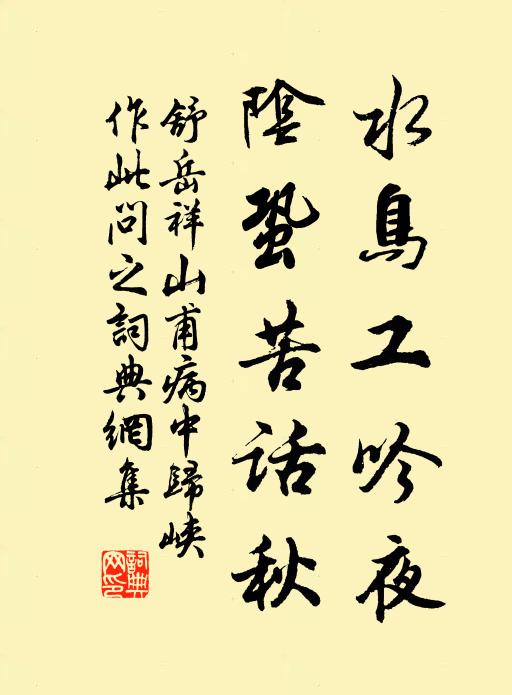 水鳥工吟夜
陰蛩苦話秋
舒岳祥山甫病中歸峽
作此問之詞典網集
詞典網印